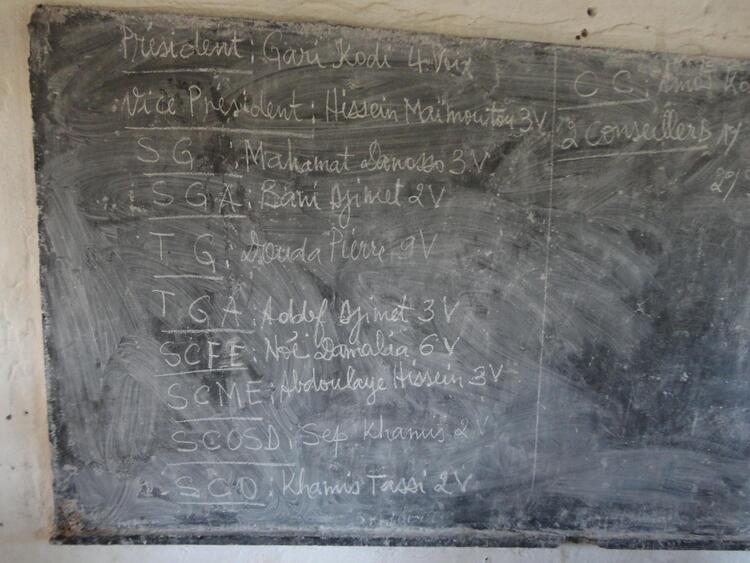 Président : Gari Kodi 4 Voix
Vice Président : Hissein Maïmoutou 3V
S G : Mahamat Danosso 3V
S G A : Bani Djimet 2V
T G : Douda Pierre 9V
T G A : Addef Djimet 3V
SCFE : Noï Damalia 6V
SCME : Abdoulaye Hissein 3V
SCOSD : Sep Khamis 2V
SCD : Khamis Tassi 2V
C C :
2 Conseillers 1)
2)